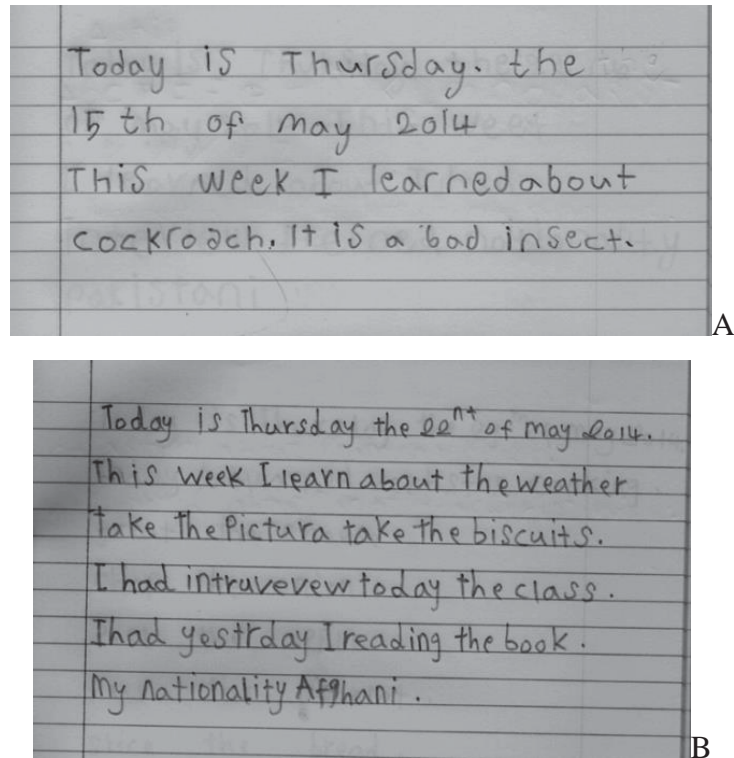 Today is Thursday. the
15 th of may 2014
This week I learned about
cockroach. It is a bad insect.
A
Today is Thursday the 22nt of may 2014.
This week I learn about the weather
take the Pictura take the biscuits.
I had intruvevew today the class.
I had yestrday I reading the book.
My nationality Afghani.
B